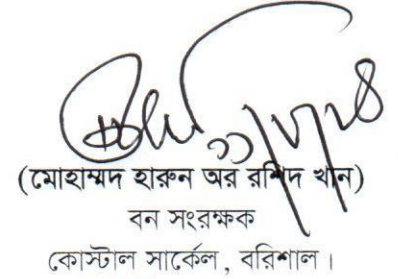 (মোহাম্মদ হারুন অর রশিদ খান)
বন সংরক্ষক
কোস্টাল সার্কেল, বরিশাল।